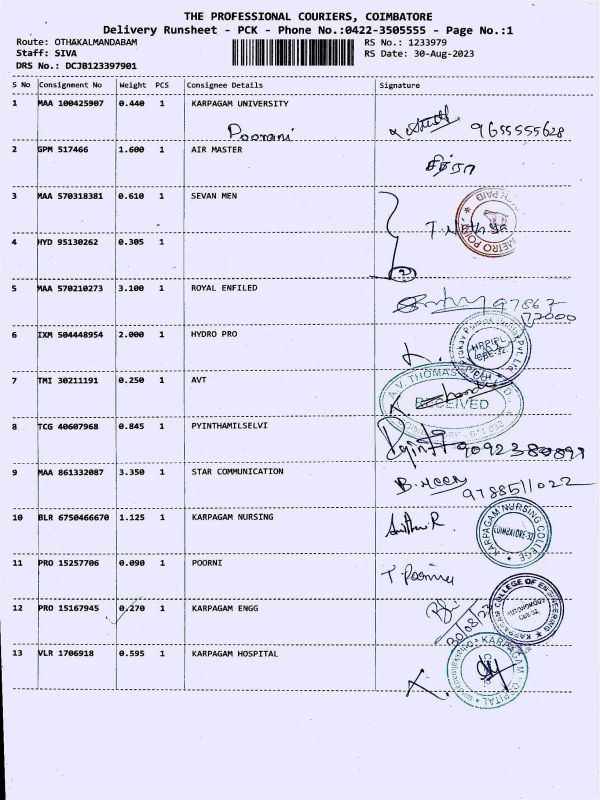 THE PROFESSIONAL COURIERS, COIMBATORE
Delivery Runsheet - PCK - Phone No.:0422-3505555 - Page No.:1
Route: OTHAKALMANDABAM RS No.: 1233979
Staff: SIVA RS Date: 30-Aug-2023
DRS No.: DCJB123397901
S No Consignment No Weight PCS Consignee Details Signature
1 MAA 100425907 0.440 1 KARPAGAM UNIVERSITY
Poorani 9655555628
2 GPM 517466 1.600 1 AIR MASTER
சித்ரா
3 MAA 570318381 0.610 1 SEVAN MEN
T. Nithya
METRO POINT PAID
4 HYD 95130262 0.305 1
2
5 MAA 570210273 3.100 1 ROYAL ENFILED
97867
72000
6 IXM 504448954 2.000 1 HYDRO PRO
Pvt. Ltd.
CBE-32
7 TMI 30211191 0.250 1 AVT
A.V THOMAS
RECEIVED
641 032
8 TCG 40607968 0.845 1 PYINTHAMILSELVI
9092380899
9 MAA 861332087 3.350 1 STAR COMMUNICATION
B. Meen
9788511022
10 BLR 6750466670 1.125 1 KARPAGAM NURSING
KARPAGAM NURSING COLLEGE
COIMBATORE-32
11 PRO 15257706 0.090 1 POORNI
T Poorni
12 PRO 15167945 0.270 1 KARPAGAM ENGG
KARPAGAM COLLEGE OF ENGINEERING
AUTONOMOUS
CBE-32
30/08/23
13 VLR 1706918 0.595 1 KARPAGAM HOSPITAL
KARPAGAM HOSPITAL